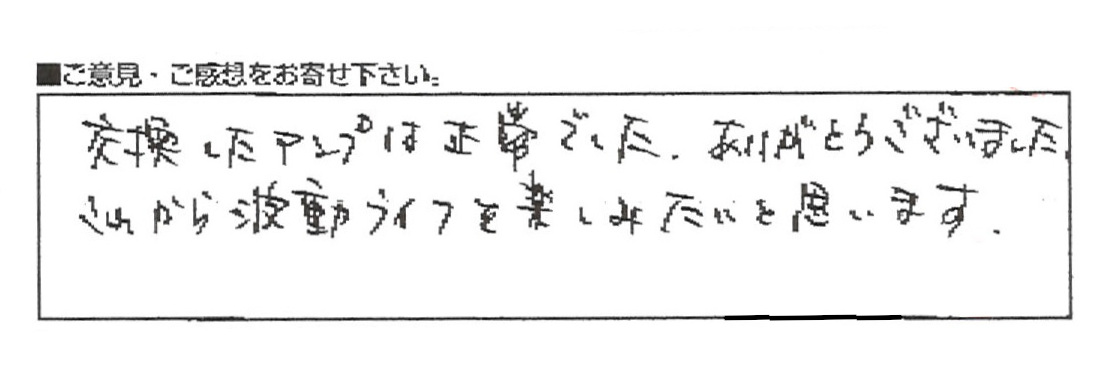 ■ご意見・ご感想をお寄せ下さい。
交換したアンプは正常でした。ありがとうございました。
これから波動ライフを楽しみたいと思います。